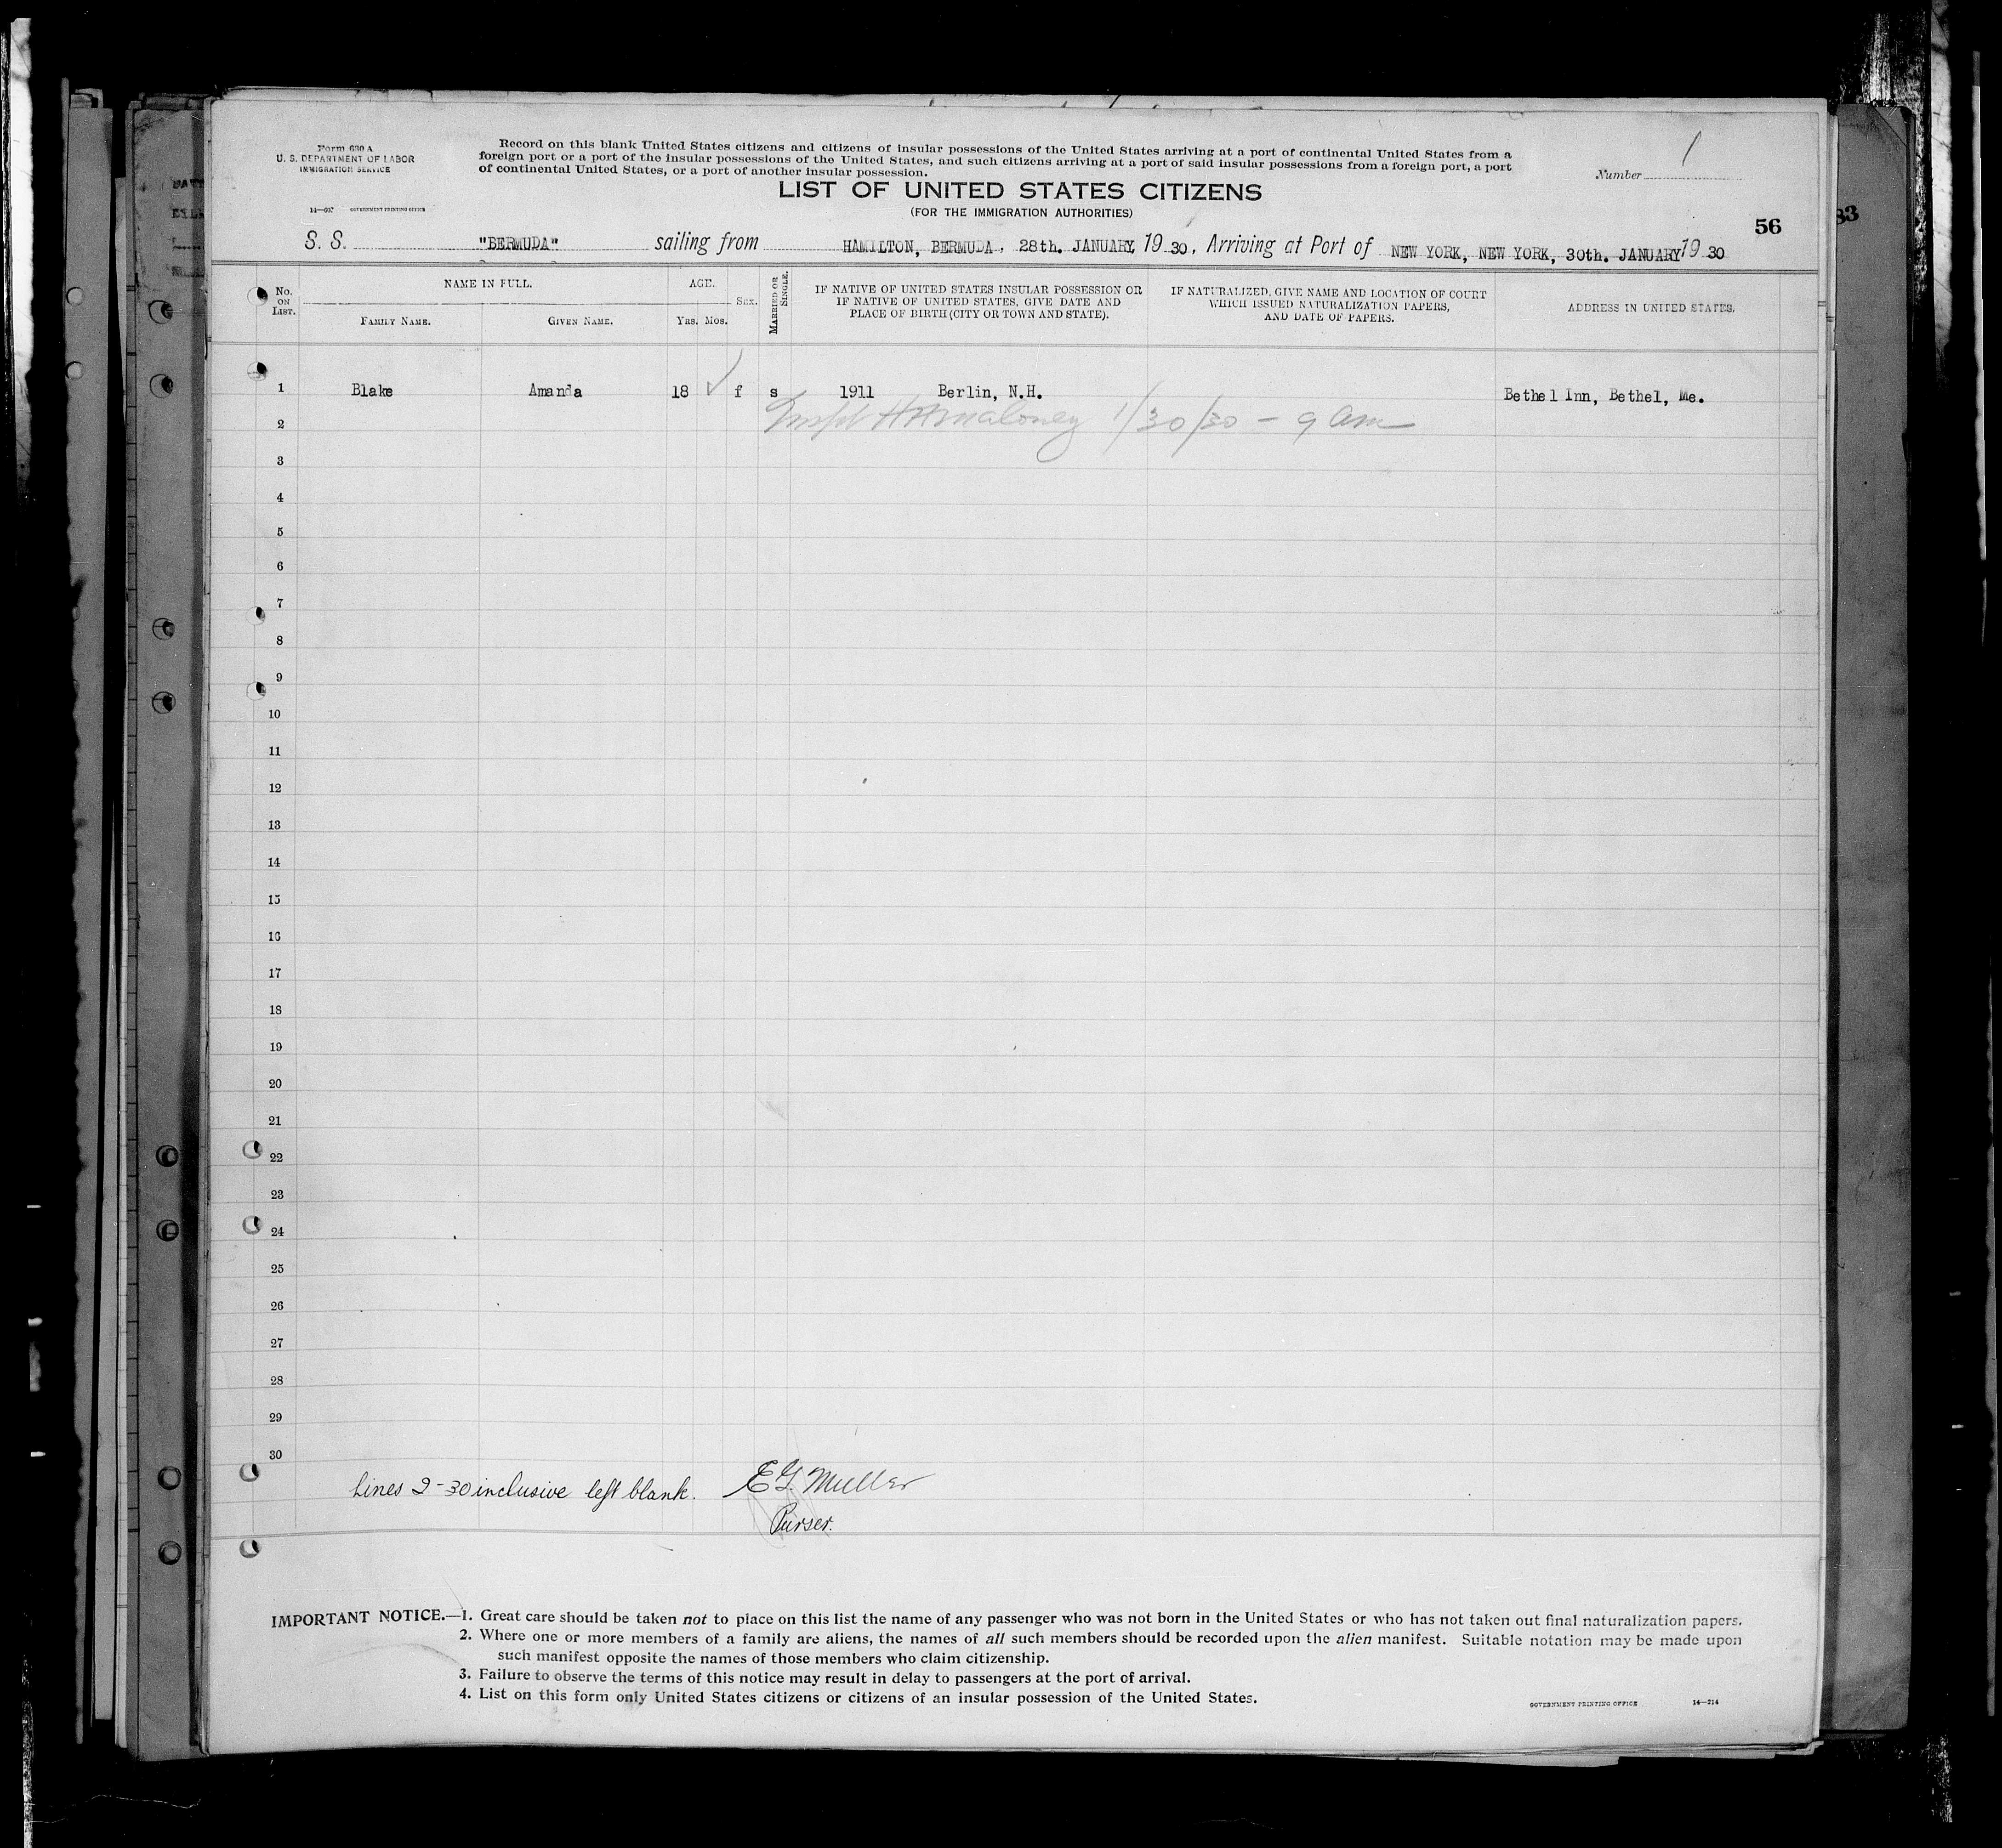 Form 630 A
U. S. DEPARTMENT OF LABOR
IMMIGRATION SERVICE
Record on this blank United States citizens and citizens of insular possessions of the United States arriving at a port of continental United States from a
foreign port or a port of the insular possessions of the United States, and such citizens arriving at a port of said insular possessions from a foreign port, a port
of continental United States, or a port of another insular possession.
Number 1
LIST OF UNITED STATES CITIZENS
(FOR THE IMMIGRATION AUTHORITIES)
GOVERNMENT PRINTING OFFICE
56
83
S. S. "BERMUDA" sailing from HAMILTON, BERMUDA, 28th. JANUARY, 1930, Arriving at Port of NEW YORK, NEW YORK, 30th. JANUARY 1930
No. ON LIST.
NAME IN FULL.
FAMILY NAME.
GIVEN NAME.
AGE.
YRS. MOS.
SEX.
MARRIED OR SINGLE.
IF NATIVE OF UNITED STATES INSULAR POSSESSION OR
IF NATIVE OF UNITED STATES, GIVE DATE AND
PLACE OF BIRTH (CITY OR TOWN AND STATE).
IF NATURALIZED, GIVE NAME AND LOCATION OF COURT
WHICH ISSUED NATURALIZATION PAPERS,
AND DATE OF PAPERS.
ADDRESS IN UNITED STATES.
1 Blake Amanda 18 ✓ f s 1911 Berlin, N.H. Bethel Inn, Bethel, Me.
Maloney 1/30/30 - 9 am
2
3
4
5
6
7
8
9
10
11
12
13
14
15
16
17
18
19
20
21
22
23
24
25
26
27
28
29
30
Lines 2-30 inclusive left blank. E G. Muller
Purser.
IMPORTANT NOTICE.—1. Great care should be taken not to place on this list the name of any passenger who was not born in the United States or who has not taken out final naturalization papers.
2. Where one or more members of a family are aliens, the names of all such members should be recorded upon the alien manifest. Suitable notation may be made upon
such manifest opposite the names of those members who claim citizenship.
3. Failure to observe the terms of this notice may result in delay to passengers at the port of arrival.
4. List on this form only United States citizens or citizens of an insular possession of the United States.
GOVERNMENT PRINTING OFFICE 14—214